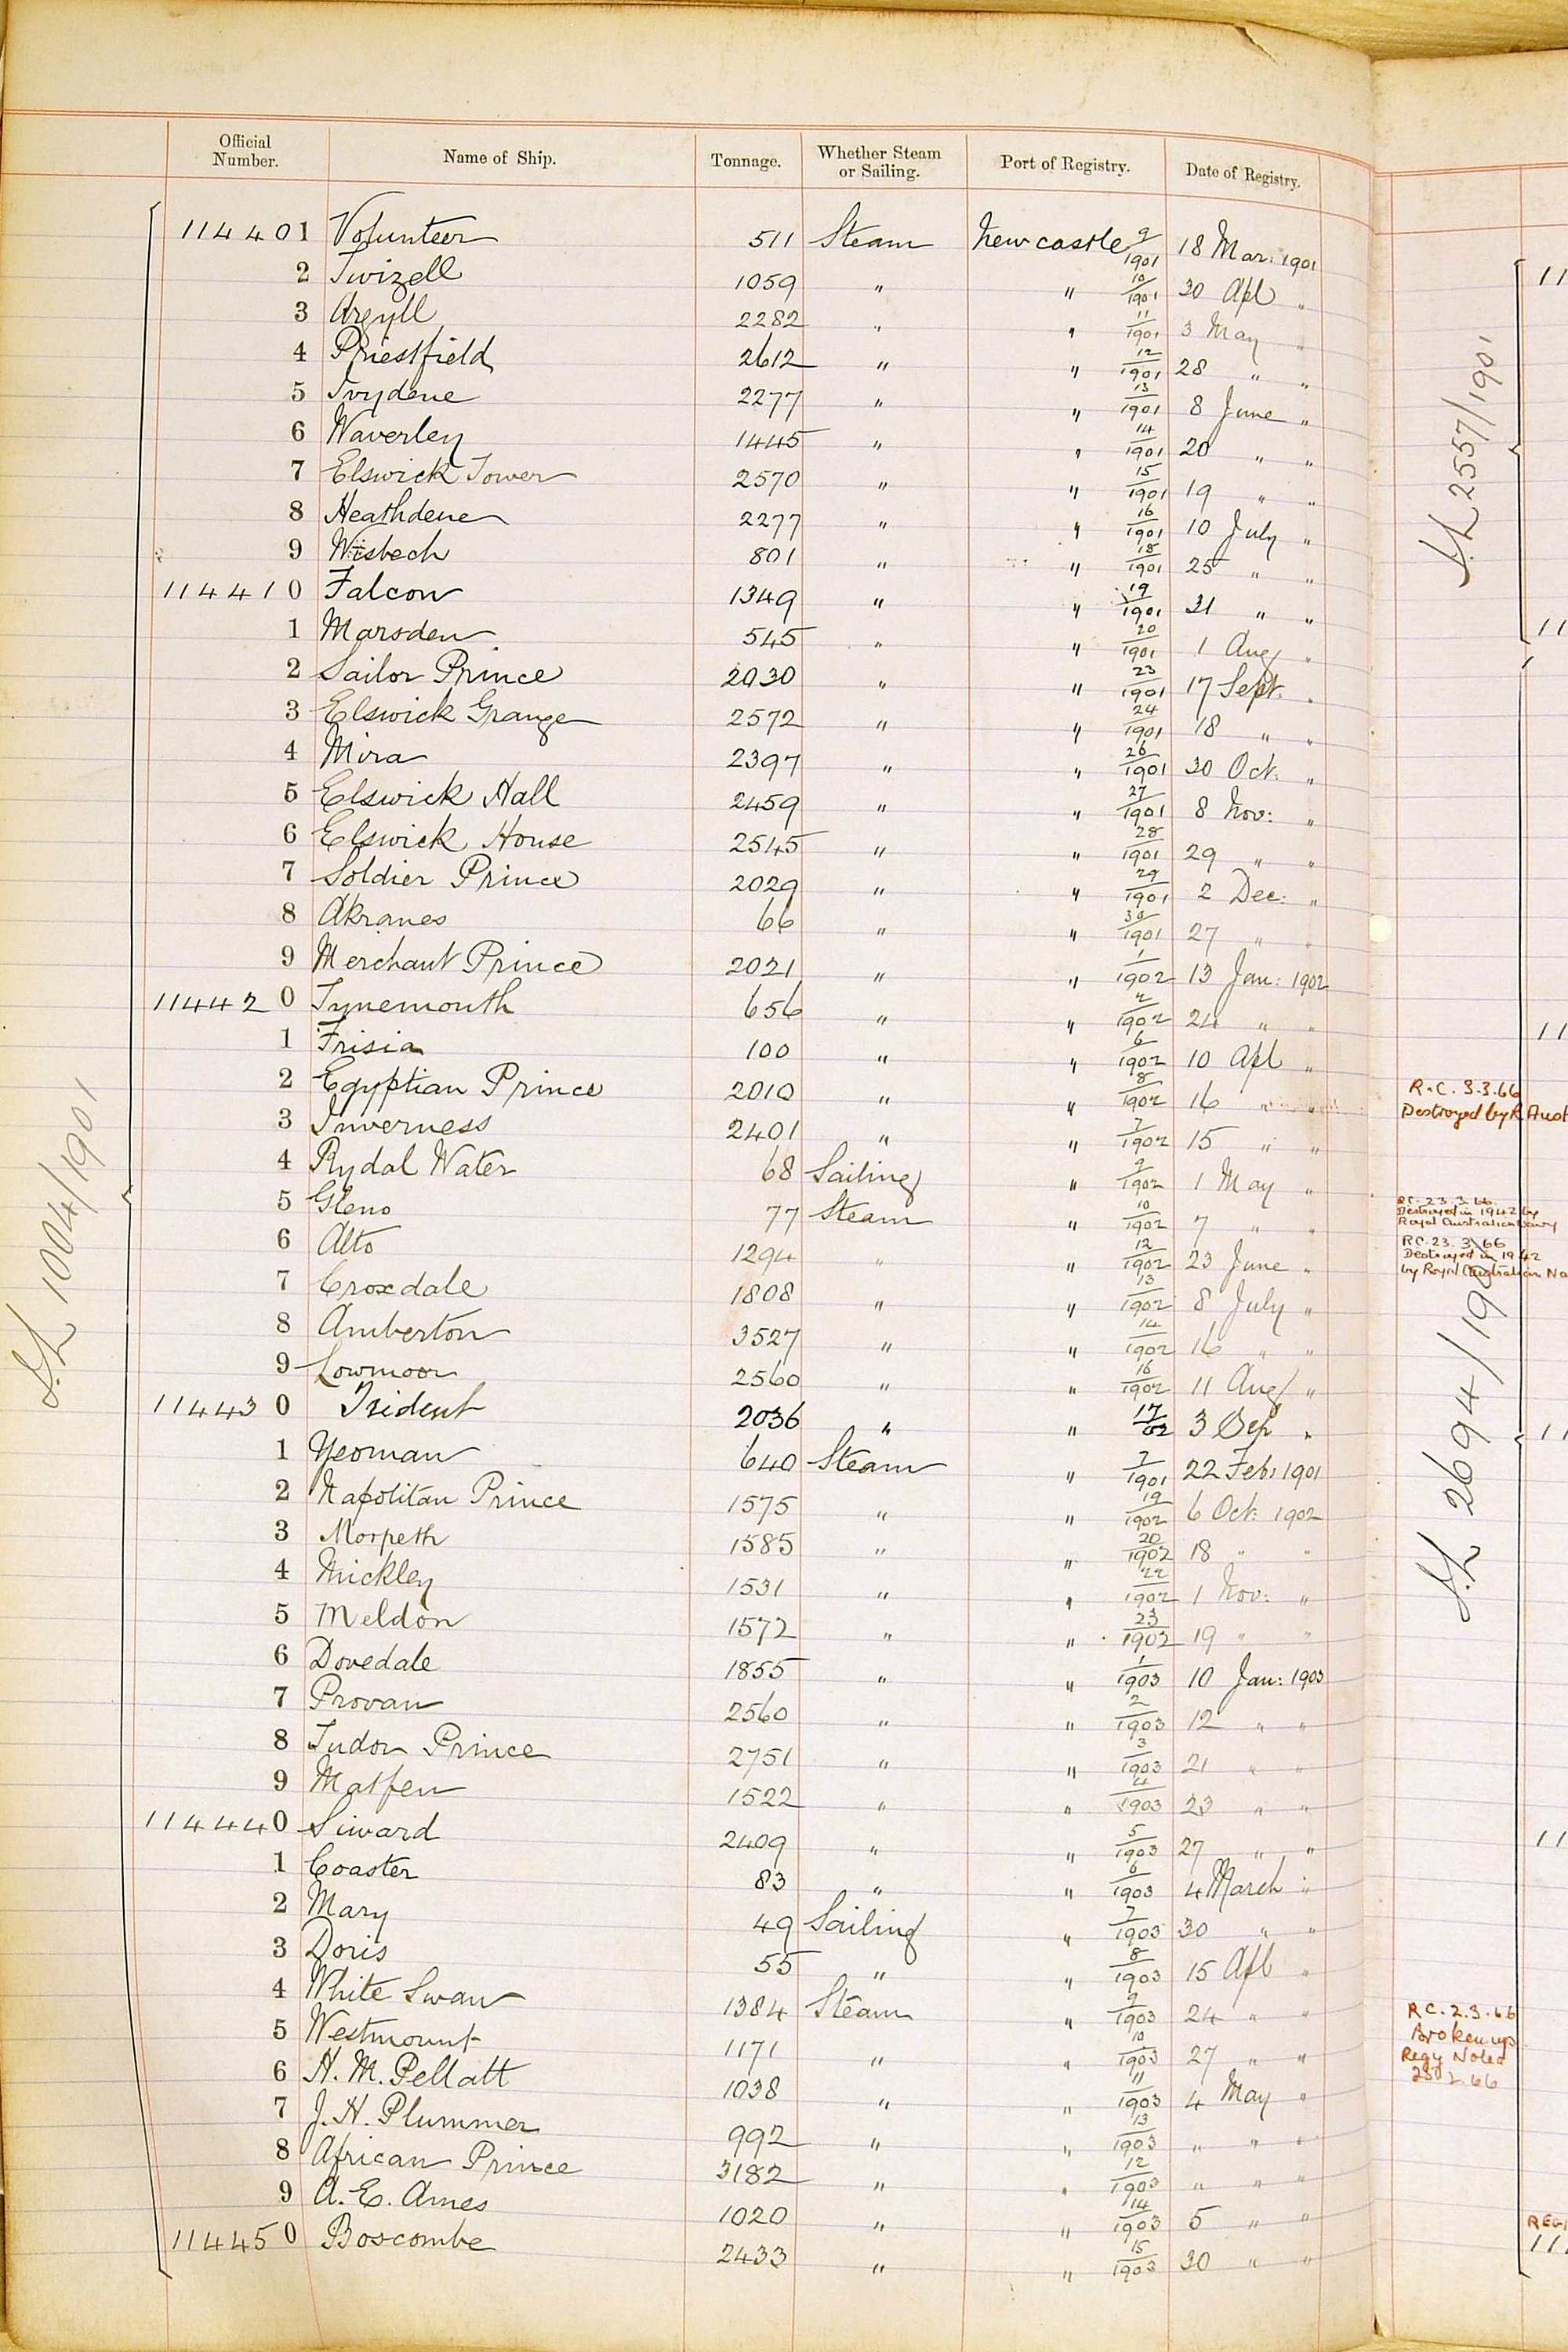 Official Number. Name of Ship. Tonnage. Whether Steam or Sailing. Port of Registry. Date of Registry.
114401 Volunteer 511 Steam Newcastle 9/1901 18 Mar: 1901
2 Twizell 1059 " " 10/1901 30 Apl "
3 Argyll 2282 " " 11/1901 3 May "
4 Priestfield 2612 " " 12/1901 28 " "
5 Ivydene 2277 " " 13/1901 8 June "
6 Waverley 1445 " " 14/1901 20 " "
7 Elswick Tower 2570 " " 15/1901 19 " "
8 Heathdene 2277 " " 16/1901 10 July "
9 Wisbech 801 " " 18/1901 25 " "
114410 Falcon 1349 " " 19/1901 31 " "
1 Marsden 545 " " 20/1901 1 Aug "
2 Sailor Prince 2030 " " 23/1901 17 Sept. "
3 Elswick Grange 2572 " " 24/1901 18 " "
4 Mira 2397 " " 26/1901 30 Oct: "
5 Elswick Hall 2459 " " 27/1901 8 Nov: "
6 Elswick House 2545 " " 28/1901 29 " "
7 Soldier Prince 2029 " " 29/1901 2 Dec: "
8 Akranes 66 " " 30/1901 27 " "
9 Merchant Prince 2021 " " 1/1902 13 Jan: 1902
114420 Tynemouth 656 " " 2/1902 24 " "
1 Frisia 100 " " 6/1902 10 Apl "
2 Egyptian Prince 2010 " " 8/1902 16 " "
3 Inverness 2401 " " 7/1902 15 " "
4 Rydal Water 68 Sailing " 9/1902 1 May "
5 Gleno 77 Steam " 10/1902 7 " "
6 Alto 1294 " " 12/1902 23 June "
7 Croxdale 1808 " " 13/1902 8 July "
8 Amberton 3527 " " 14/1902 16 " "
9 Lowmoor 2560 " " 16/1902 11 Aug "
114430 Trident 2036 " " 17/02 3 Sep "
1 Yeoman 640 Steam " 7/1901 22 Feb: 1901
2 Napolitan Prince 1575 " " 19/1902 6 Oct: 1902
3 Morpeth 1585 " " 20/1902 18 " "
4 Mickley 1531 " " 22/1902 1 Nov: "
5 Meldon 1572 " " 23/1902 19 " "
6 Dovedale 1855 " " 1/1903 10 Jan: 1903
7 Provan 2560 " " 2/1903 12 " "
8 Tudor Prince 2751 " " 3/1903 21 " "
9 Matfen 1522 " " 4/1903 23 " "
114440 Siward 2409 " " 5/1903 27 " "
1 Coaster 83 " " 6/1903 4 March "
2 Mary 49 Sailing " 7/1903 30 " "
3 Doris 55 " " 8/1903 15 Apl "
4 White Swan 1384 Steam " 9/1903 24 " "
5 Westmount 1171 " " 10/1903 27 " "
6 H. M. Pellatt 1038 " " 11/1903 4 May "
7 J. H. Plummer 992 " " 13/1903 " " "
8 African Prince 3182 " " 12/1903 " " "
9 A. E. Ames 1020 " " 14/1903 5 " "
114450 Boscombe 2433 " " 15/1903 30 " "
1004/1901
2557/1901
R.C. 3.3.66
Destroyed by R Aust
RC. 23.3.66.
Destroyed in 1942 by
Royal Australian Navy
RC. 23.3.66
Destroyed in 1942
by Royal Australian Na
2694/190
RC. 2.3.66
Broken up
Regy Noted
25.2.66
REGI